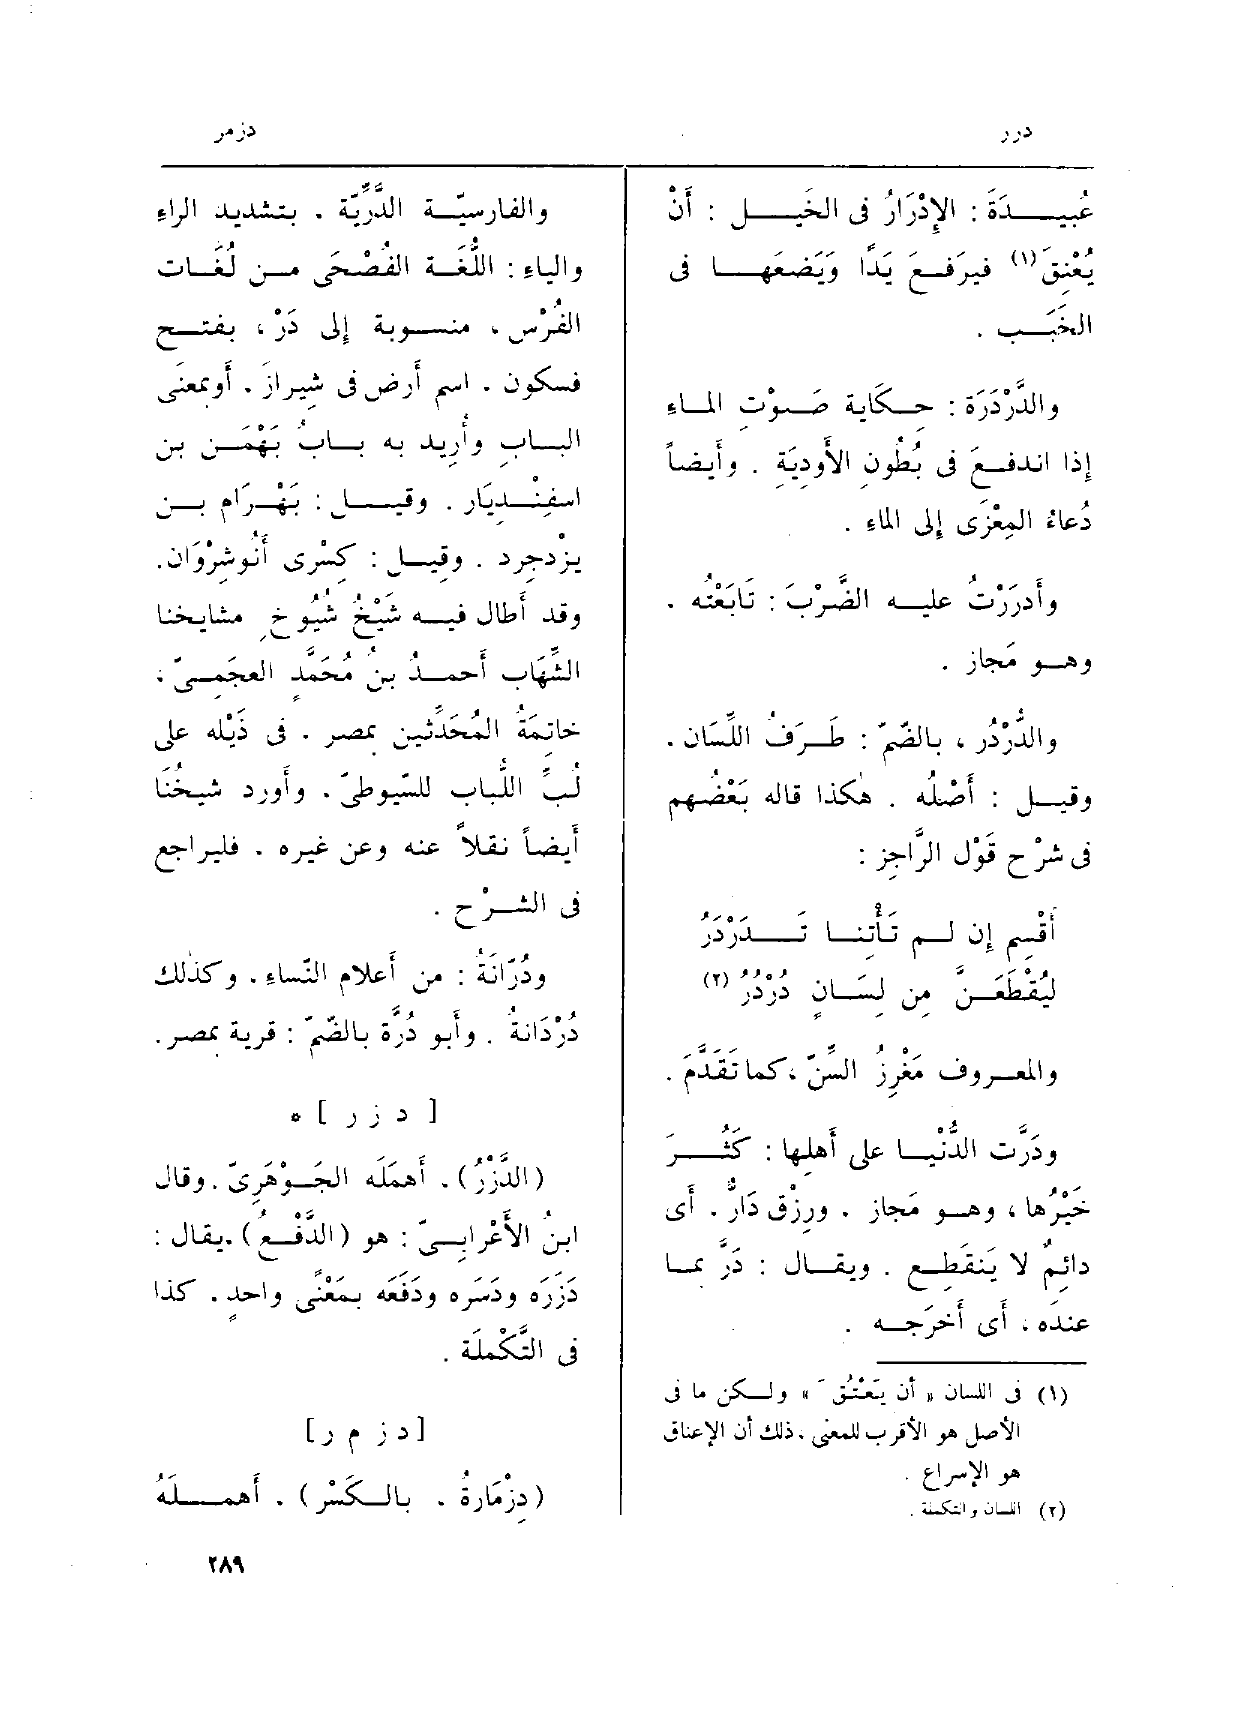 درر
دزمر
عُبيدَةَ : الإِدْرَارُ فى الخَيل : أَنْ
يُعْنِقَ (١) فيرفَع يَدًا ويَضعَها فى
الخَبَب .
والدَّرْدَرَة : حكَاية صَوْتِ الماء
إِذا اندفعَ فى بُطون الأَودِيَة . وأَيضاً
دُعاءُ المِعْزَى إِلى الماء .
وأَدرَرْتُ عليه الضَّرْبَ : تَابَعْتُه .
وهو مَجاز .
والدُّرْدُر ، بالضّمّ : طَرَفُ اللِّسَان .
وقيل : أَصْلُه . هٰكذا قاله بَعْضُهم
فى شرْح قَوْل الرَّاجِز :
أُقْسِم إِن لم تَأْتِنا تَدَرْدَرُ
ليُقْطَعَنَّ مِن لِسَانٍ دُرْدُرُ (٢)
والمعروف مَغْرِزُ السِّنّ ، كما تَقَدَّمَ .
ودَرَّت الدُّنْيا على أَهلِها : كَثُرَ
خَيْرُها ، وهو مَجاز . ورِزْق دَارٌّ . أَى
دائِمٌ لا يَنقَطِع . ويقال : دَرَّ بما
عندَه ، أَى أَخرَجه .
(١) فى اللسان « أن يَعْتَنِقَ » ولكن ما فى
الأصل هو الأقرب للمعنى ، ذلك أن الإعناق
هو الإسراع .
(٢) اللسان والتكملة .
والفارسيّة الدَّرِّيَّة . بتشديد الراءِ
والياءِ : اللُّغَة الفُصْحَى من لُغَات
الفُرْس ، منسوبة إِلى دَرْ ، بفتح
فسكون . اسم أَرض فى شِيراز . أَو بمعنَى
البابِ وأُرِيد به بابُ بَهْمَن بن
اسفِنْدِيَار . وقيل : بَهْرَام بن
يزْدجِرد . وقيل : كِسْرى أَنُوشِرْوَان .
وقد أَطال فيه شَيْخُ شُيُوخِ مشايخنا
الشِّهَاب أَحمدُ بنُ مُحَمَّدٍ العجَمىّ ،
خاتِمَةُ المُحَدِّثين بمصر . فى ذَيْله على
لُبِّ اللُّباب للسّيوطىّ . وأَورد شيخُنَا
أَيضاً نقلاً عنه وعن غيره . فليراجع
فى الشرْح .
ودُرّانَةُ : من أَعلام النّساءِ . وكذٰلك
دُرْدَانةُ . وأَبو دُرَّة بالضّمّ : قرية بمصر .
[ د ز ر ] *
(الدَّزْرُ) . أَهمَلَه الجَوْهَرِىّ . وقال
ابنُ الأَعْرابِىّ : هو (الدَّفْعُ) . يقال :
دَزَرَه ودَسَره ودَفَعَه بمَعْنًى واحدٍ . كذا
فى التَّكْمِلَة .
[ د ز م ر ]
(دِزْمَارةُ . بالكَسْرِ) . أَهملَهُ
٢٨٩